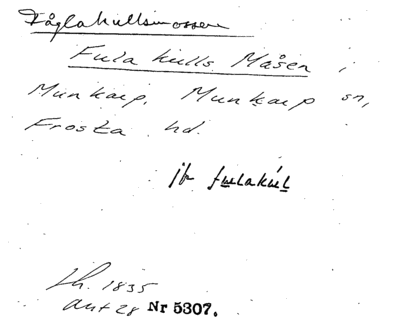 Fåglakullsmossen
Fula kulls Måsen,
Munkarp, Munkarp sn,
Frosta hd.
jfr fu̲lakúl̲
Lh. 1835
Akt 28 Nr 5307.